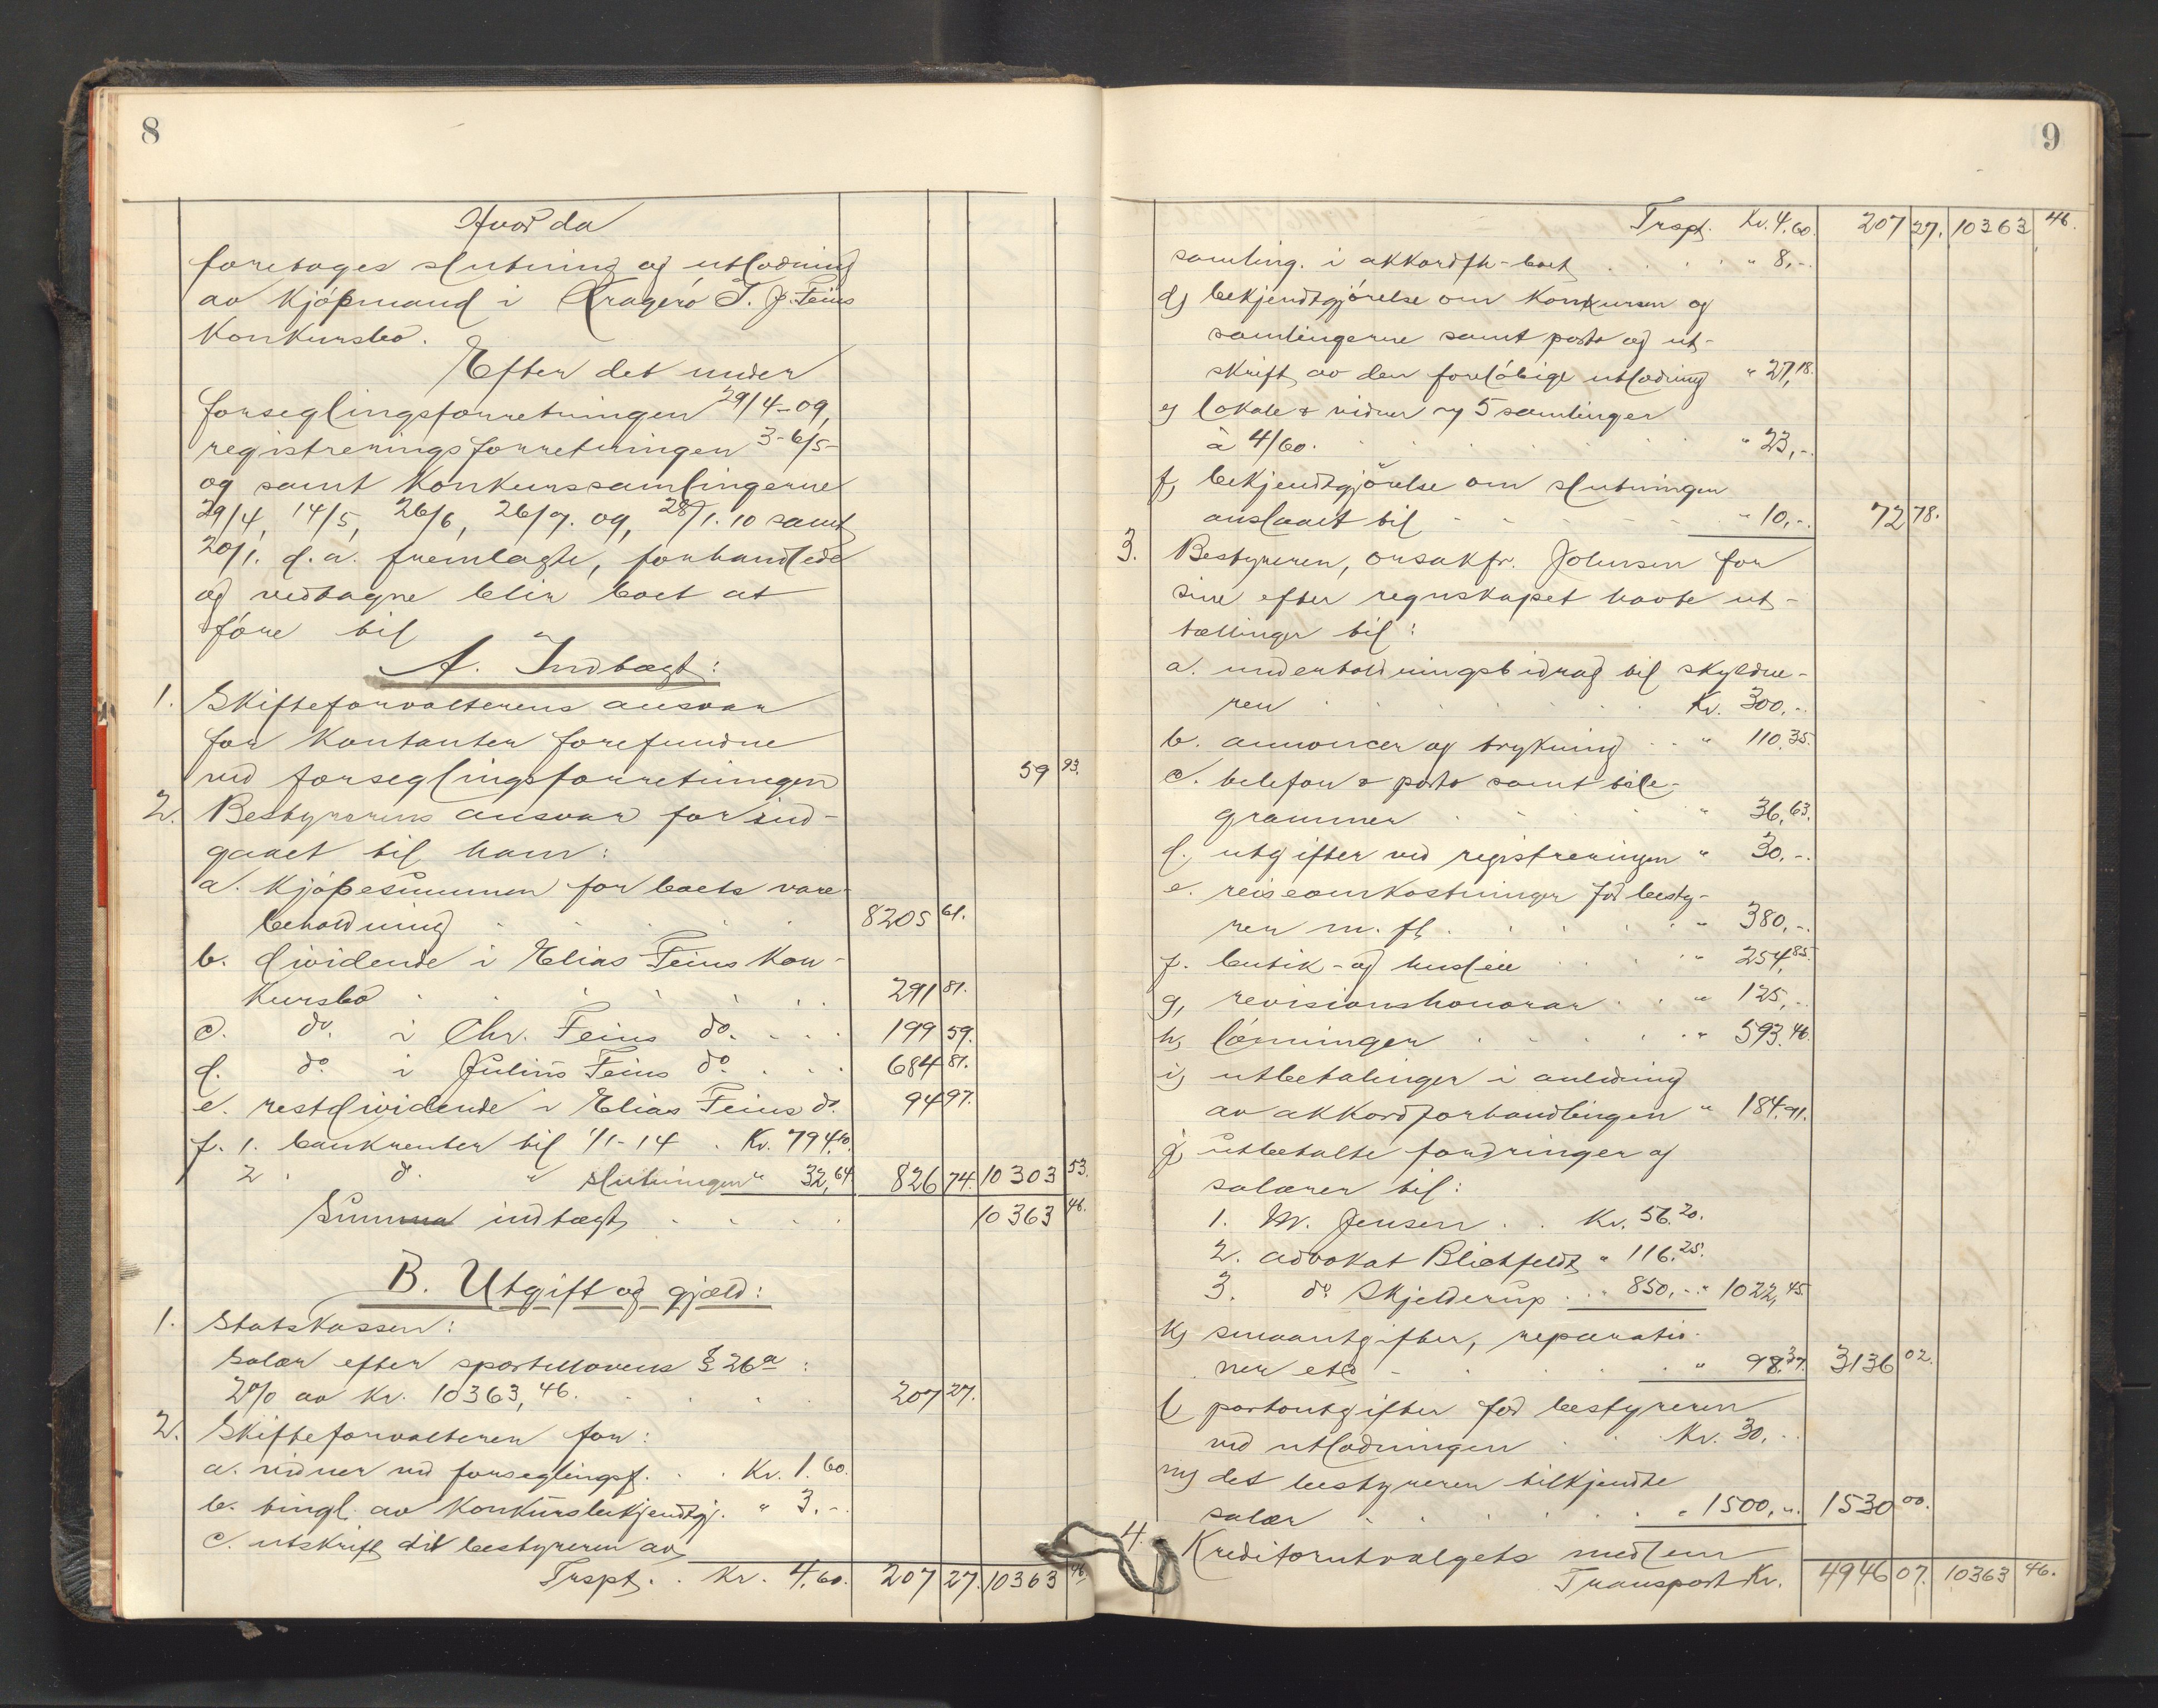 8
Hvorda
foretages slutning og utlodning
av kjøpmand i Kragerø T. J. Feins
konkursbo.
Efter det under
forseglingsforretningen 29/4-09,
registreringsforretningen 3-6/5-
og samt konkurssamlingerne
29/4, 14/5, 26/6, 26/7. 09, 28/1. 10 samt
20/1. d.a. fremlagte, forhandlede
og vedtagne blir boet at
føre til
A. Indtægt:
1. Skifteforvalterens ansvar
for kontanter forefundne
ved forseglingsforretningen 59 93.
2. Bestyrerens ansvar for ind-
gaaet til ham:
a. kjøpesummen for boets vare-
beholdning 8205 61.
b. dividende i Elias Feins kon-
kursbo 291 81.
c. do. i Chr. Feins do. 199 59.
d. do i Julius Feins do 684 81.
e. restdividende i Elias Feins do. 94 97.
f. 1. bankrenter til 1/1-14 . Kr. 794.10.
2. d. " slutningen " 32,64 826 74. 10303 53.
Summa indtægt 10363 46.
B. Utgift og gjæld:
1. Statskassen:
Salær efter sportellovens § 26a:
2% av Kr. 10363,46. 207 27.
2. Skifteforvalteren for:
a. vidner ved forseglingsf. . . Kr. 1.60.
b. tingl. av konkursbekjendtgj. " 3.-
c. utskrift til bestyreren av
Trspt. . Kr. 4.60. 207 27. 10363 46.
9
Trspt. Kr. 4.60. 207 27. 10363 46.
samling. i akkordfh-boet " 8,-.
d) bekjendtgjørelse om konkursen og
samlingerne samt porto og ut-
skrift av den foreløbige utlodning " 27,18.
e) lokale & vidner v 5 samlinger
à 4/60. " 23,-.
f) bekjendtgjørelse om slutningen
anslaaet til " 10,-. 72 78.
3. Bestyreren, orsakfr. Johnsen for
sine efter regnskapet havte ut-
tællinger til:
a. underholdningsbidrag til skyldne-
ren Kr. 300,-.
b. annoncer og trykning . . " 110.35.
c. telefon & porto samt tele-
grammer " 36,63.
d. utgifter ved registreringen " 30,-.
e. reiseomkostninger for besty-
rer m. fl. " 380,-.
f. butik- og husleie " 254,85.
g, revisionshonorar . . " 125,-.
h, lønninger " 593.46.
i) utbetalinger i anledning
av akkordforhandlingen " 184.91.
j) utbetalte fordringer og
salærer til:
1. M. Jensen . . Kr. 56.20.
2. advokat Blichfeldt " 116.25.
3. do Skjelderup . . " 850,-. " 1022,45.
k) smaautgifter, reparatio-
ner etc - " 98.37. 3136 02.
l) portoutgifter for bestyreren
ved utlodningen . . Kr. 30,-.
m) det bestyreren tilkjendte
salær " 1500,-. 1530 00.
4. Kreditorutvalgets medlem
Transport Kr. 4946 07. 10363 46.